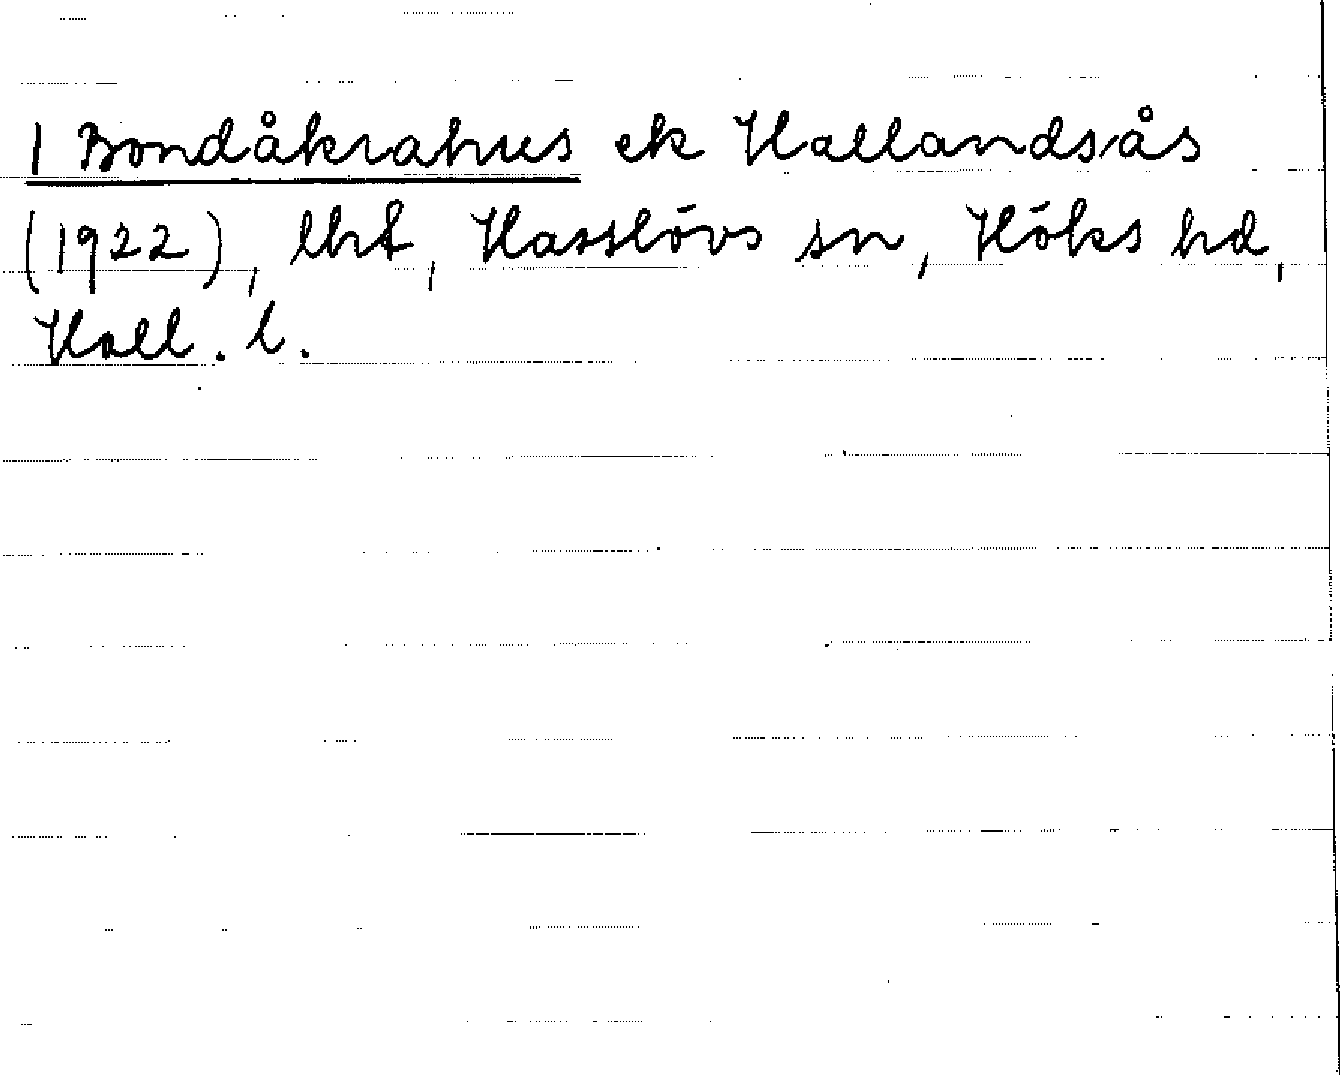 1 Bondåkrahus ek Hallandsås
(1922), lht, Hasslövs sn, Höks hd,
Hall. l.